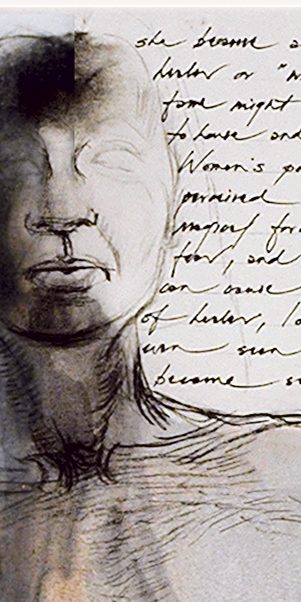 she become a
healer or "w
fame might
to house and
Women's po
perceived
magical for
fear, and
can cause
of healer, lo
own son
become s